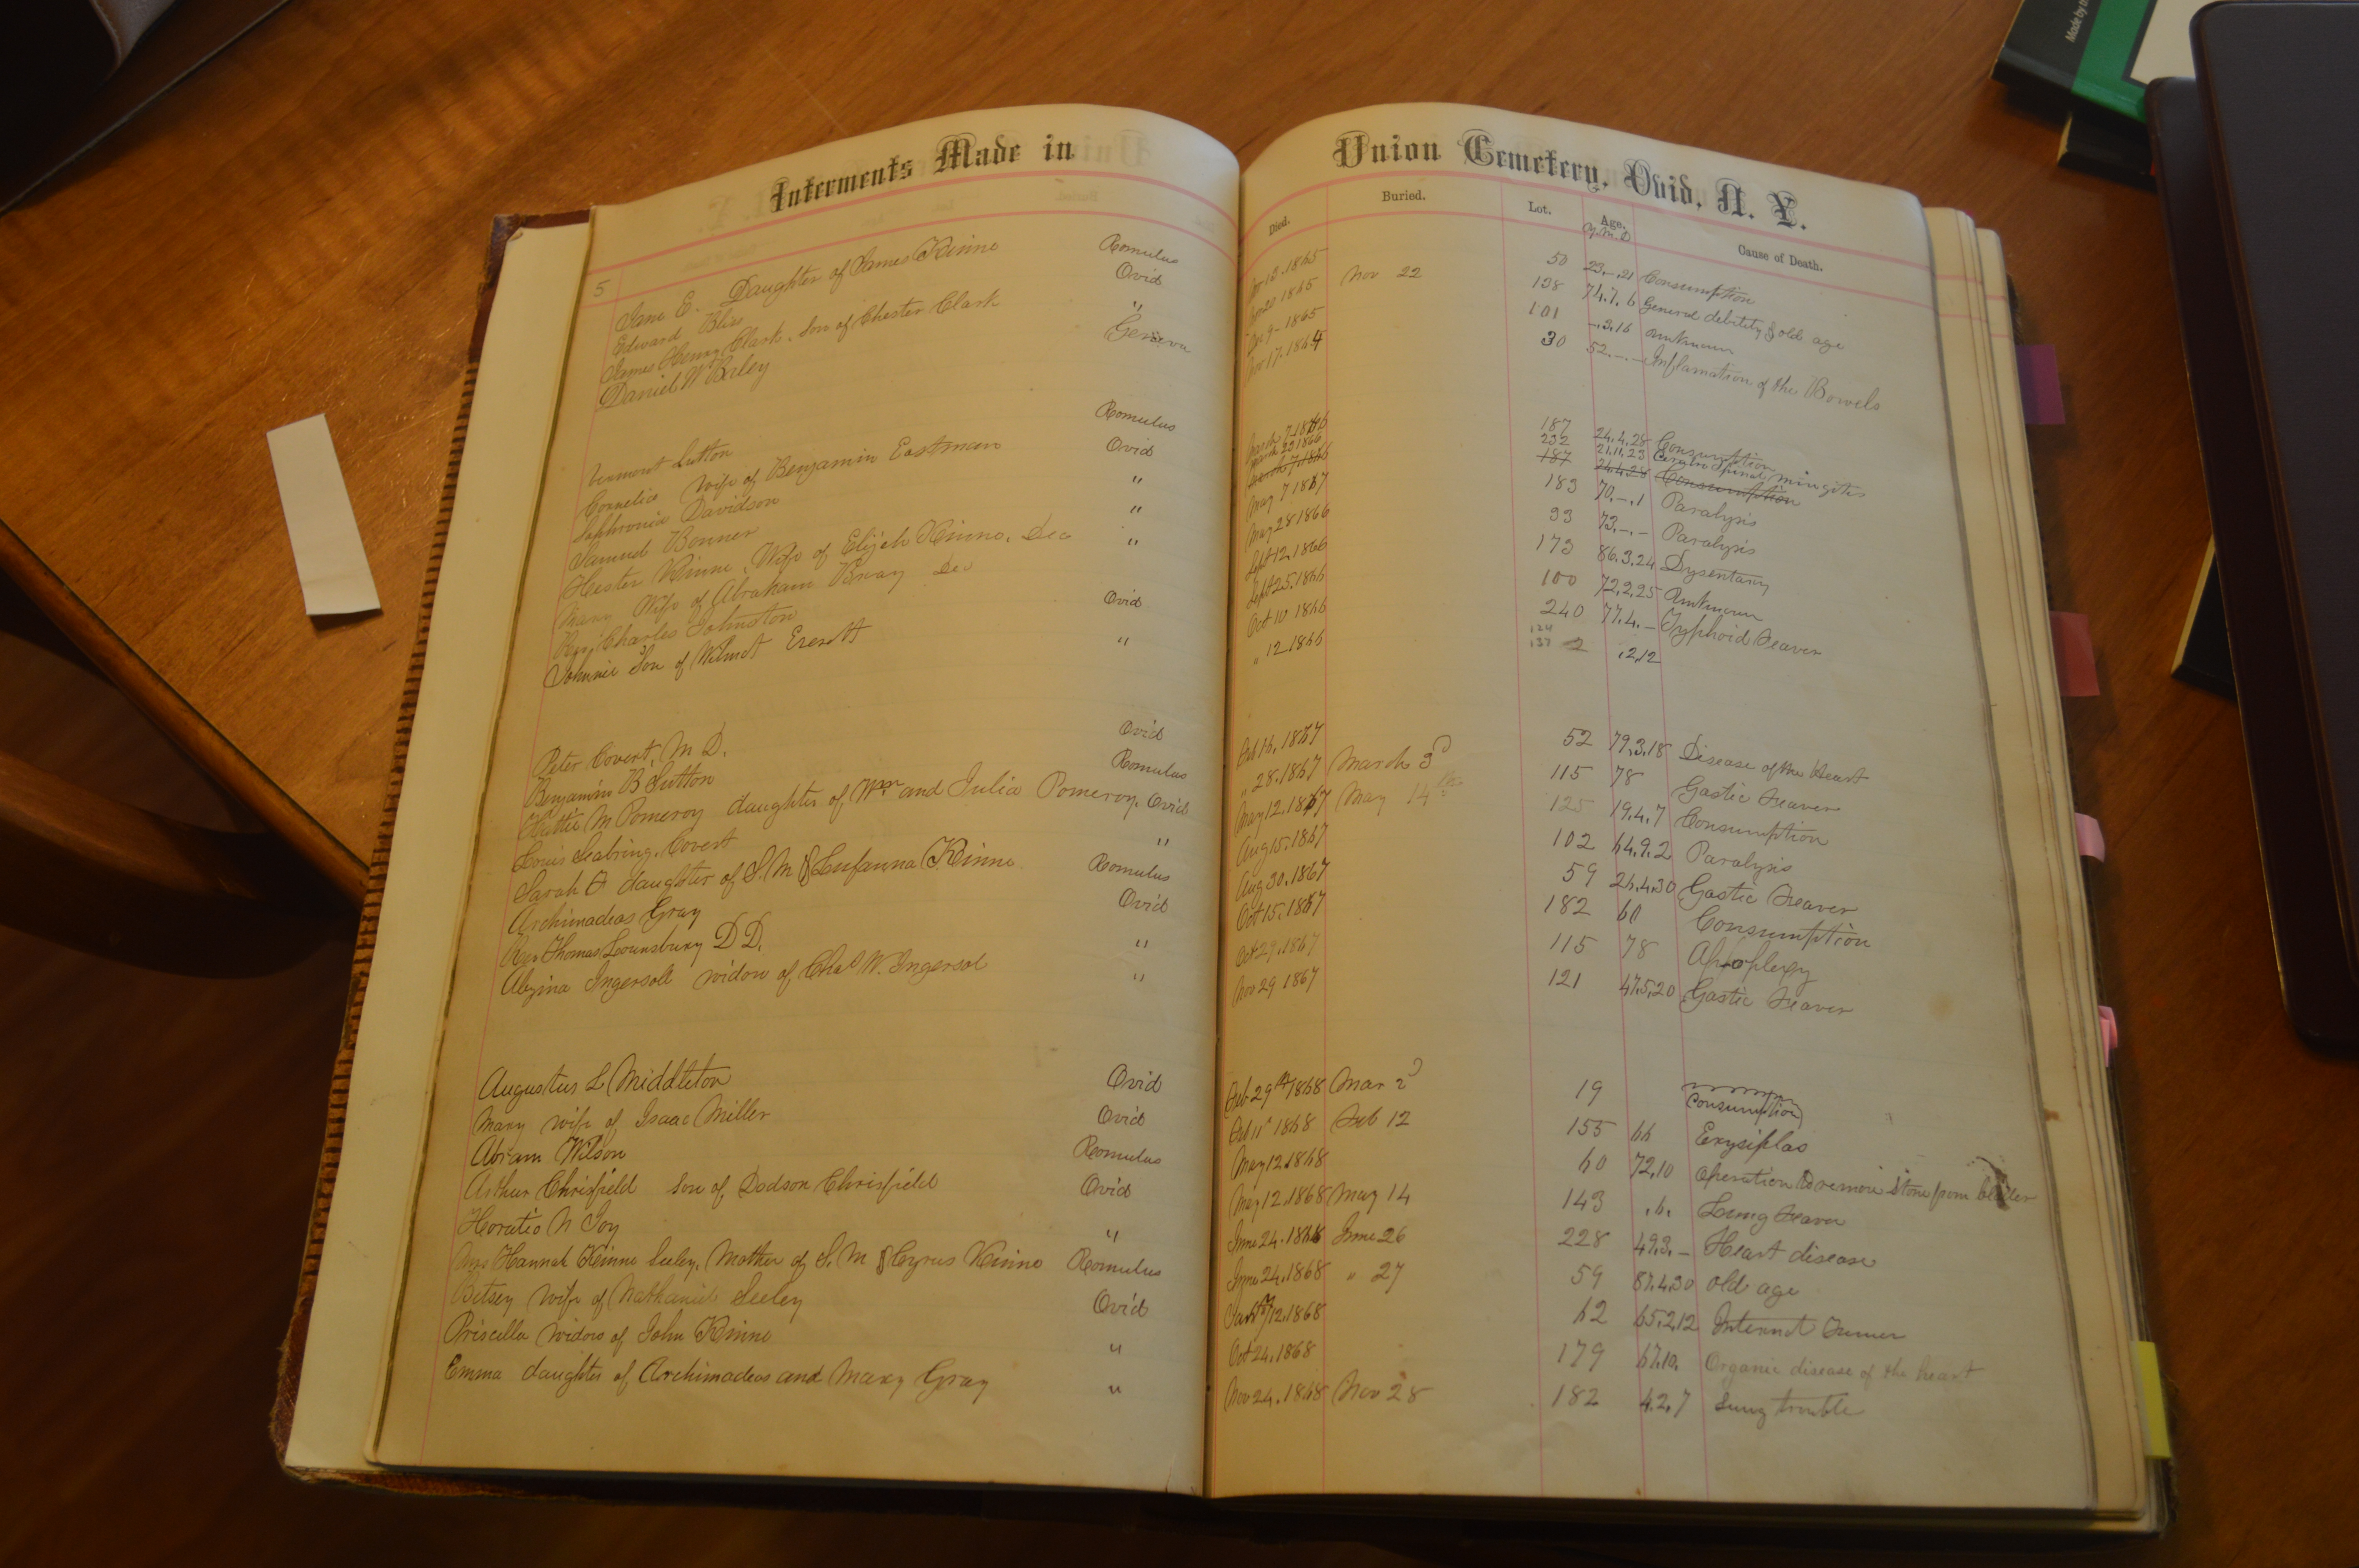 Interments Made in Union Cemetery, Ovid, N. Y.
Died. Buried. Lot. Age. Cause of Death.
Y. M. D
5
Jane E. Daughter of James Kinne Romulus 13. 1865 50 23.-.21 Consumption
Edward Bliss Ovid 20 1865 Nov 22 138 74.7.6 General debility & old age
James Henry Clark. Son of Chester Clark " 9- 1865 101 -.3.16 Unknown
Daniel W Geneva Nov 17. 1864 30 52.-.- Inflamation of the Bowels
Vermont Sutton Romulus March 7 1866 187 24.4.28 Consumption
Cornelia Wife of Benjamin Eastman Ovid March 23 1866 232 21.11.23 Spinal mingites
187 24.4.28 Consumption
Sophronia Davidson " May 7 1867 183 70.-.1 Paralysis
Samuel Bonner " May 28 1866 93 73.-.- Paralysis
Hester Kinne, Wife of Elijah Kinne. Dec " Sept 12. 1866 173 86.3.24 Dysentary
Mary Wife of Abraham Bray Dec Sept 25. 1866 100 72.2.25 Unknown
Rev. Charles Johnston Ovid Oct 10 1866 240 77.4.- Typhoid Feaver
Johnnie Son of Wilmot Everett " " 12 1866 124 137 2 .2.12
Peter Covert, M D. Ovid Feb 16. 1867 52 79.3.18 Disease of the Heart
Benjamin B Sutton Romulus " 28. 1867 March 3d 115 78 Gastic Feaver
Hattie M Pomeroy daughter of Wm and Julia Pomeroy. Ovid May 12. 1867 May 14th 125 19.4.7 Consumption
Louis Seabring. Covert " Aug 15. 1867 102 64.9.2 Paralysis
Sarah daughter of S. M & Kinne Romulus Aug 30. 1867 59 26.4.30 Gastic Feaver
Archimadeas Gray Ovid Oct 15. 1867 182 60 Consumption
Rev Thomas Lounsbury D D. " Oct 29. 1867 115 78 Apoplexy
Alzina Ingersoll widow of Chas W. Ingersol " Nov 29 1867 121 47.5.20 Gastic Feaver
Augustus L Middleton Ovid Feb 29th 1868 Mar 2d 19 Consumption
Mary wife of Isaac Miller Ovid Feb 11" 1868 Feb 12 155 66 Erysiplas
Abram Wilson Romulus May 12. 1868 60 72.10 Operation to remove stone from bladder
Arthur Chrisfield Son of Dodson Chrisfield Ovid May 12. 1868 May 14 143 .6. Lung Feaver
Horatio N Joy " June 24. 1868 June 26 228 49.3.- Heart disease
Mrs Hannah Kinne Seeley. Mother of S. M & Cyrus Kinne Romulus June 24. 1868 " 27 59 87.4.30 old age
Betsey wife of Nathaniel Seeley Ovid 12. 1868 62 65.2.12 Internal Tumer
Priscilla widow of John Kinne " Oct 24. 1868 179 67.10. Organic disease of the heart
Emma daughter of Archimadeas and Mary Gray " Nov 24. 1868 Nov 28 182 4.2.7 Lung trouble
Made by